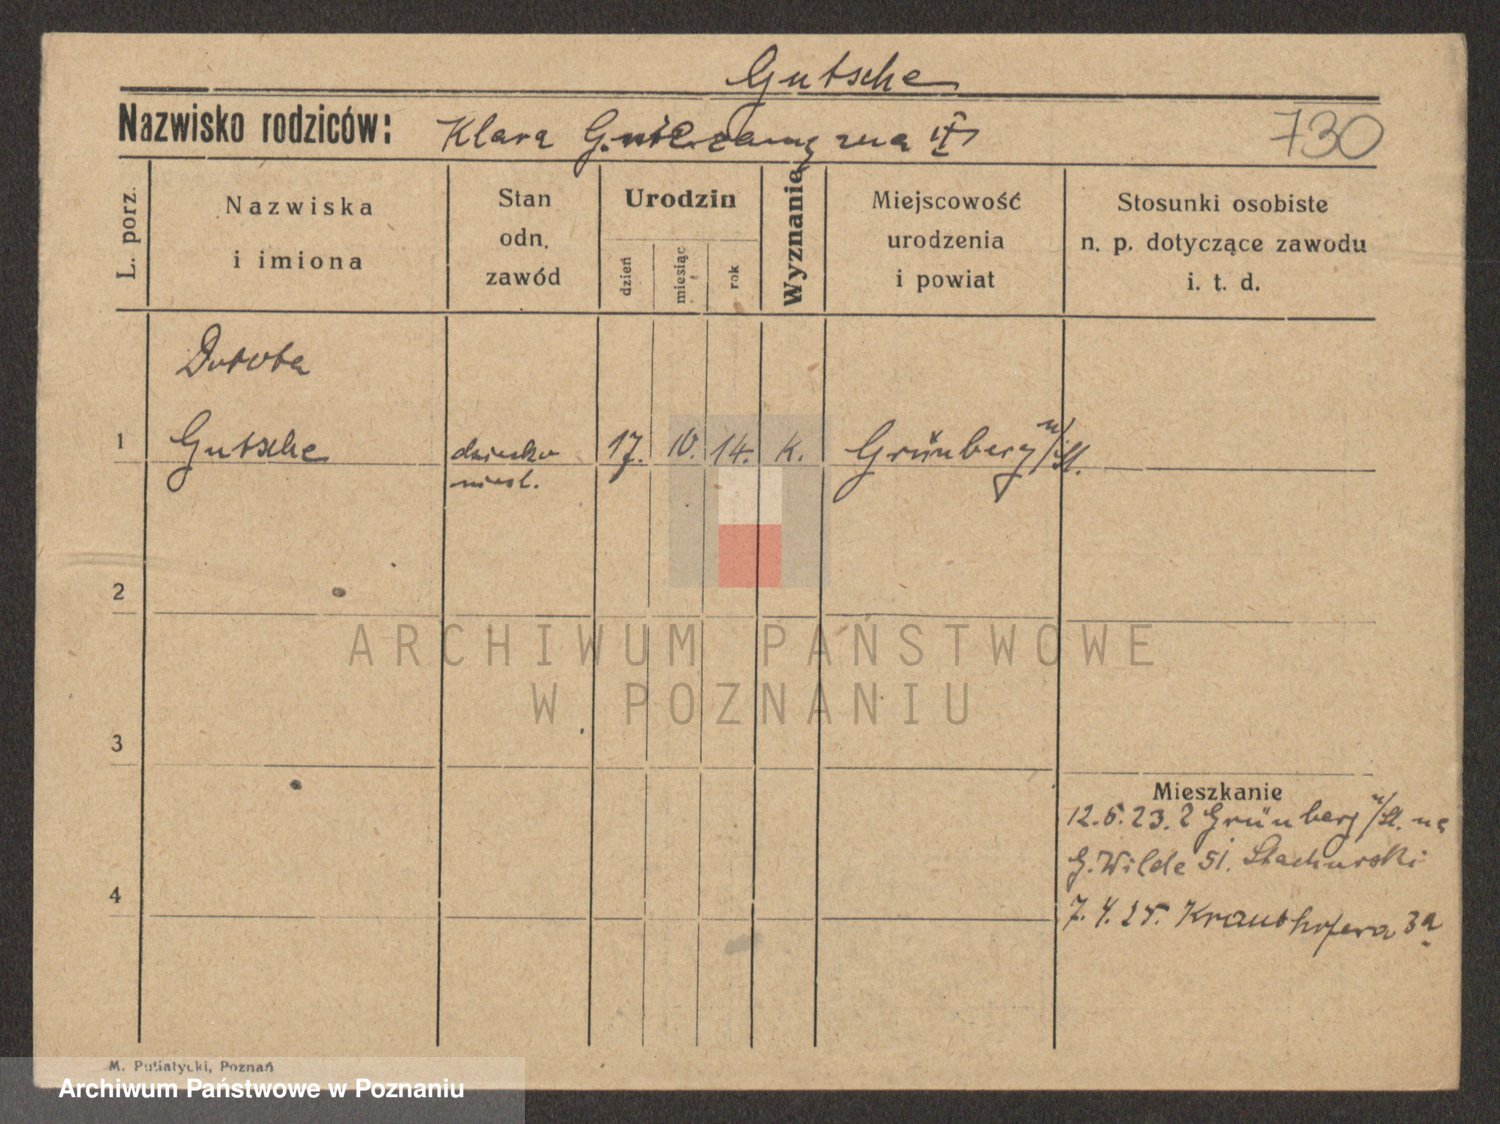 Gutsche
Nazwisko rodziców: Klara G. zamężna
730
L. porz.
Nazwiska
i imiona
Stan
odn.
zawód
Urodzin
dzień
miesiąc
rok
Wyznanie
Miejscowość
urodzenia
i powiat
Stosunki osobiste
n. p. dotyczące zawodu
i. t. d.
Dorota
1 Gutsche dziecko 17. 10. 14. k. Grünberg n/Sl.
niesl.
2
ARCHIWUM PAŃSTWOWE
W POZNANIU
3
Mieszkanie
12.6.23. z Grünberg n/Sl. na
G. Wilde 51. Stachurski
4
7.4.25. Krauthofera 3a
M. Putiatycki, Poznań
Archiwum Państwowe w Poznaniu